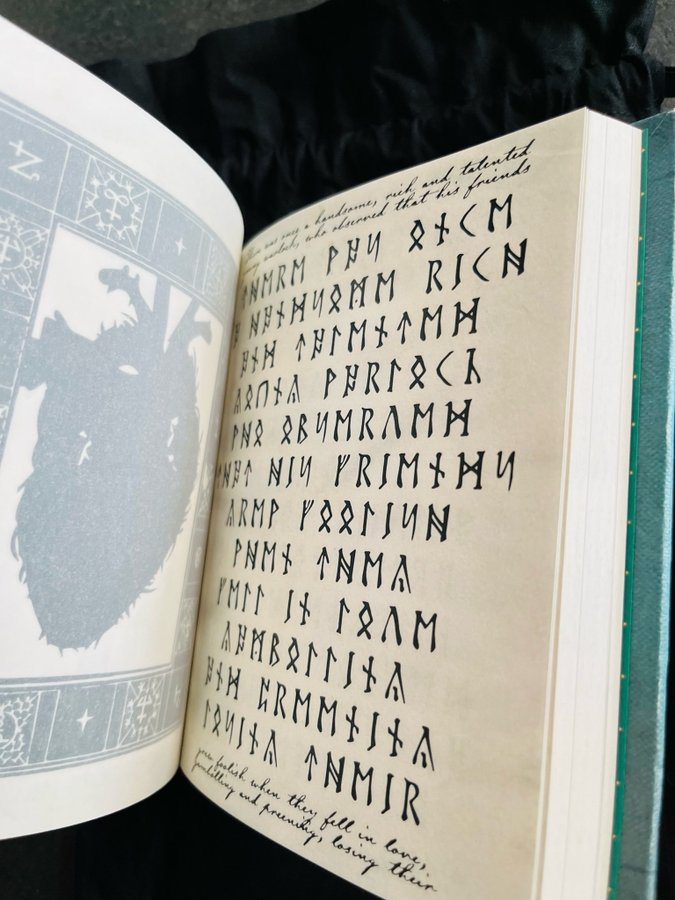 There was once a handsome, rich and talented
young warlock, who observed that his friends
ᛏᚺᛖᚱᛖ ᚹᚨᛋ ᛟᚾᚲᛖ
ᚨ ᚺᚨᚾᛞᛋᛟᛗᛖ ᚱᛁᚲᚺ
ᚨᚾᛞ ᛏᚨᛚᛖᚾᛏᛖᛞ
ᚣᛟᚢᚾᚣ ᚹᚨᚱᛚᛟᚲᚳ
ᚹᚺᛟ ᛟᛒᛋᛖᚱᚢᛖᛞ
ᛏᚺᚨᛏ ᚺᛁᛋ ᚠᚱᛁᛖᚾᛞᛋ
ᚣᚱᛖᚹ ᚠᛟᛟᛚᛁᛋᚺ
ᚹᚺᛖᚾ ᛏᚺᛖᚣ
ᚠᛖᛚᛚ ᛁᚾ ᛚᛟᚢᛖ
ᚣᚨᛗᛒᛟᛚᛚᛁᚾᚣ
ᚨᚾᛞ ᛈᚱᛖᛖᚾᛁᚾᚣ
ᛚᛟᛋᛁᚾᚣ ᛏᚺᛖᛁᚱ
grew foolish when they fell in love,
gambolling and preening, losing their